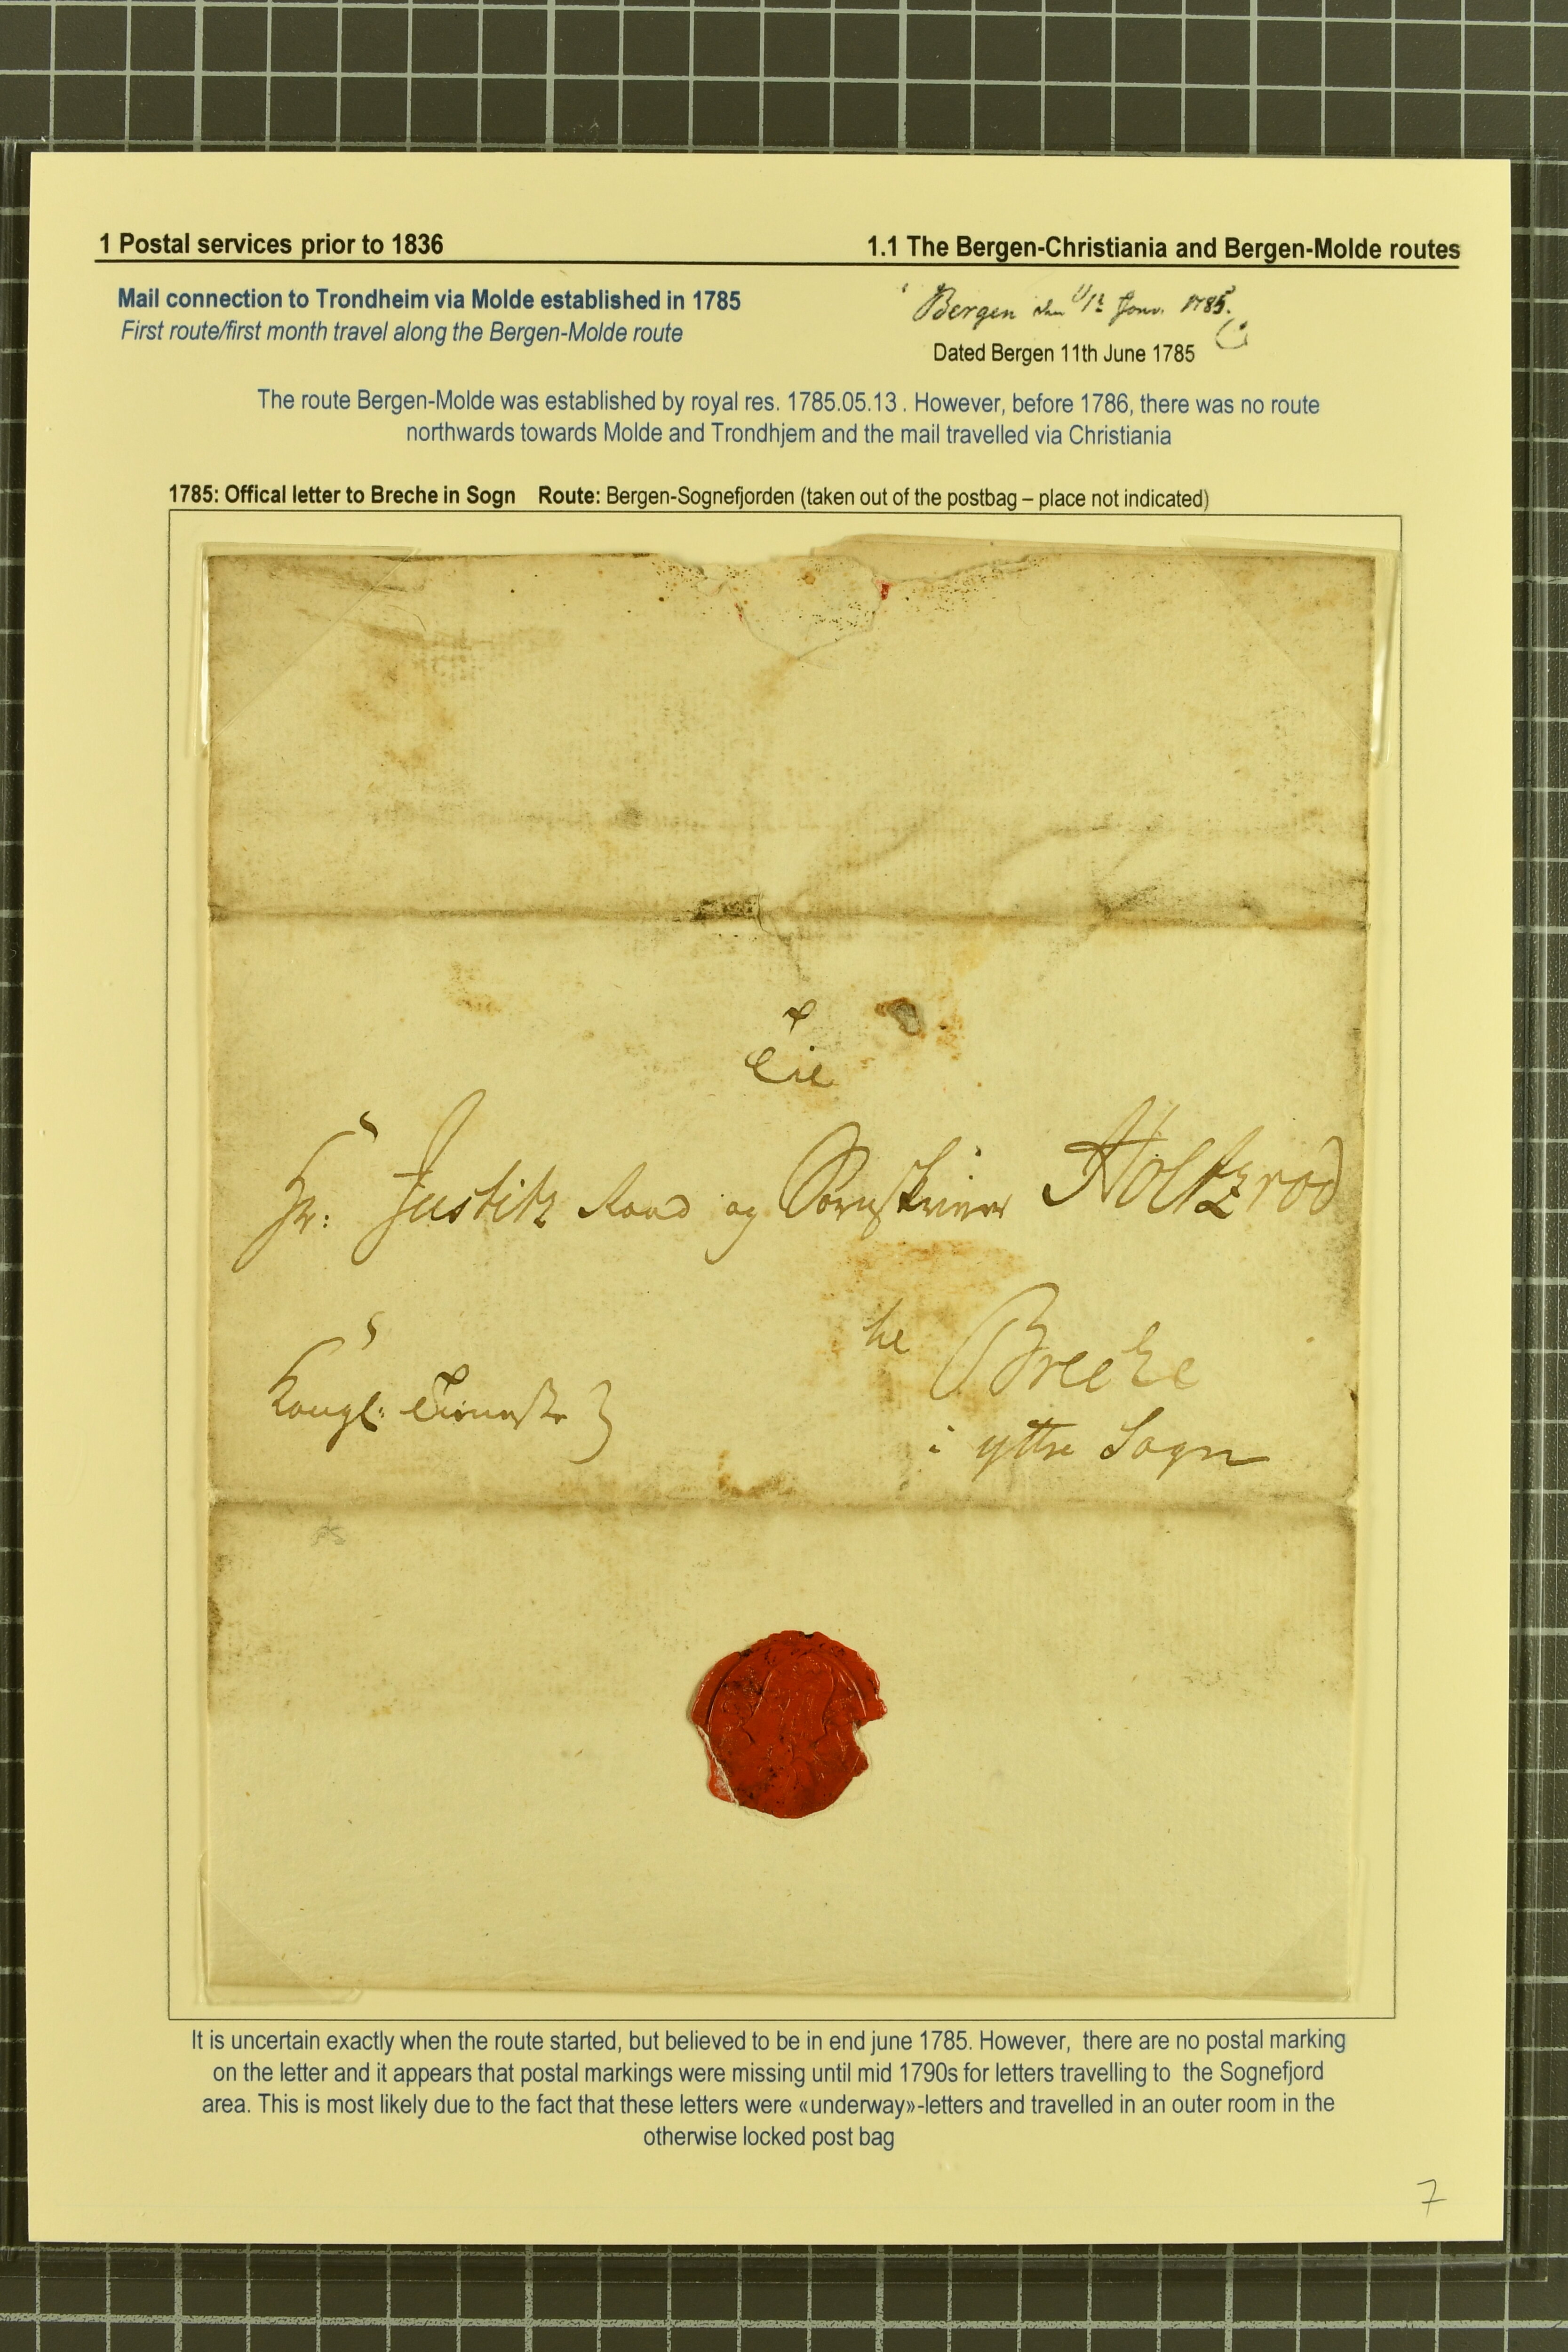 1 Postal services prior to 1836
1.1 The Bergen-Christiania and Bergen-Molde routes
Mail connection to Trondheim via Molde established in 1785
First route/first month travel along the Bergen-Molde route
Bergen 1785.
Dated Bergen 11th June 1785
The route Bergen-Molde was established by royal res. 1785.05.13 . However, before 1786, there was no route
northwards towards Molde and Trondhjem and the mail travelled via Christiania
1785: Offical letter to Breche in Sogn Route: Bergen-Sognefjorden (taken out of the postbag – place not indicated)
Til
Hr: Justitz Raad og Sorenskriver Holtzrød
Kongl: Tieneste
Breche
i yttre Sogn
It is uncertain exactly when the route started, but believed to be in end june 1785. However, there are no postal marking
on the letter and it appears that postal markings were missing until mid 1790s for letters travelling to the Sognefjord
area. This is most likely due to the fact that these letters were «underway»-letters and travelled in an outer room in the
otherwise locked post bag
7